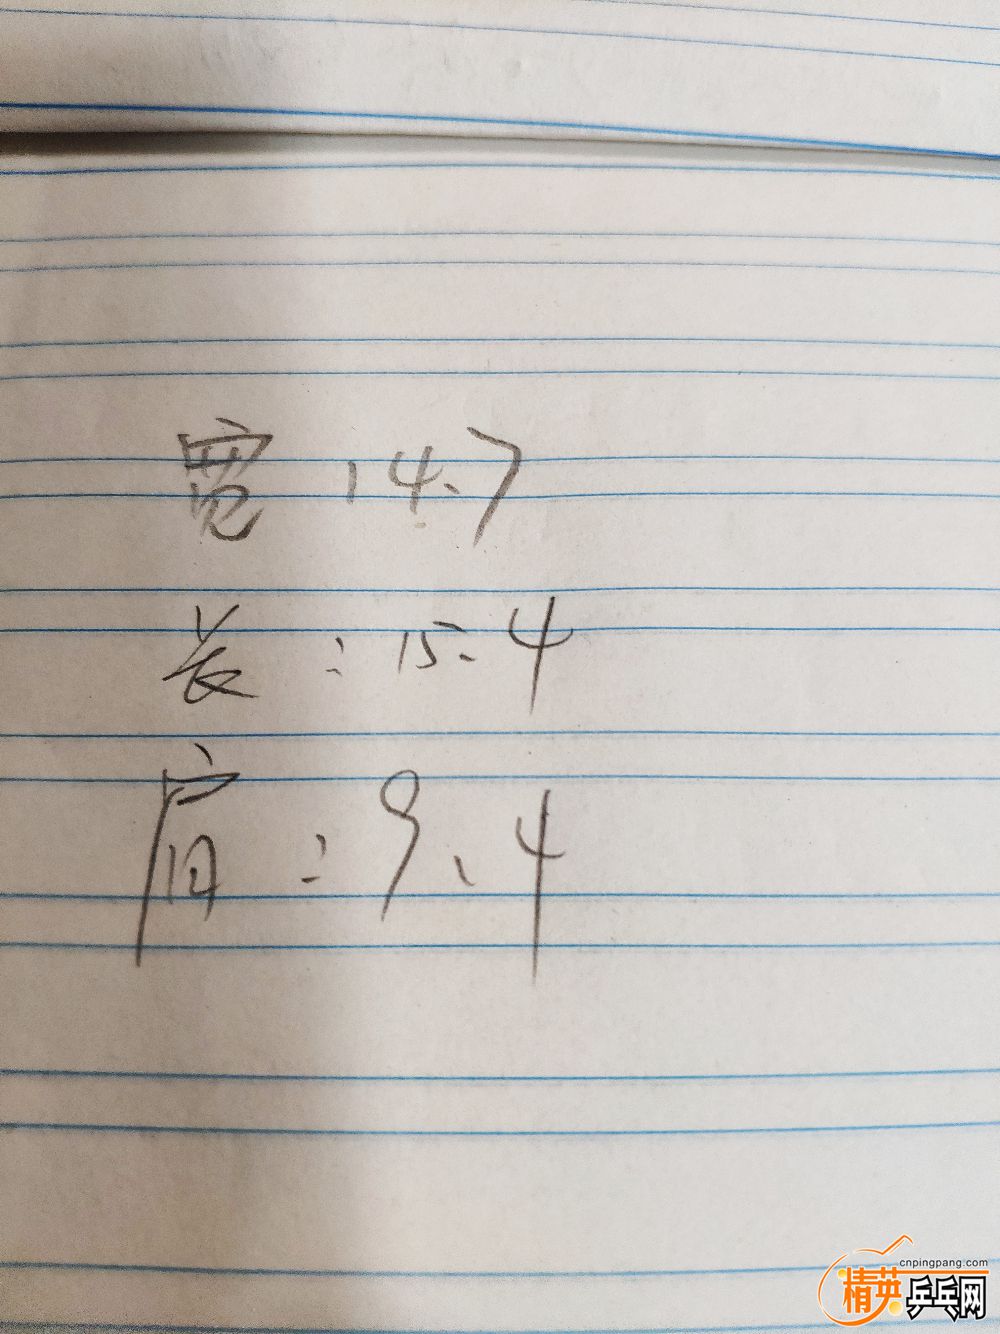 宽 14.7
长：15.4
肩：9.4
cnpingpang.com
精英乒乓网